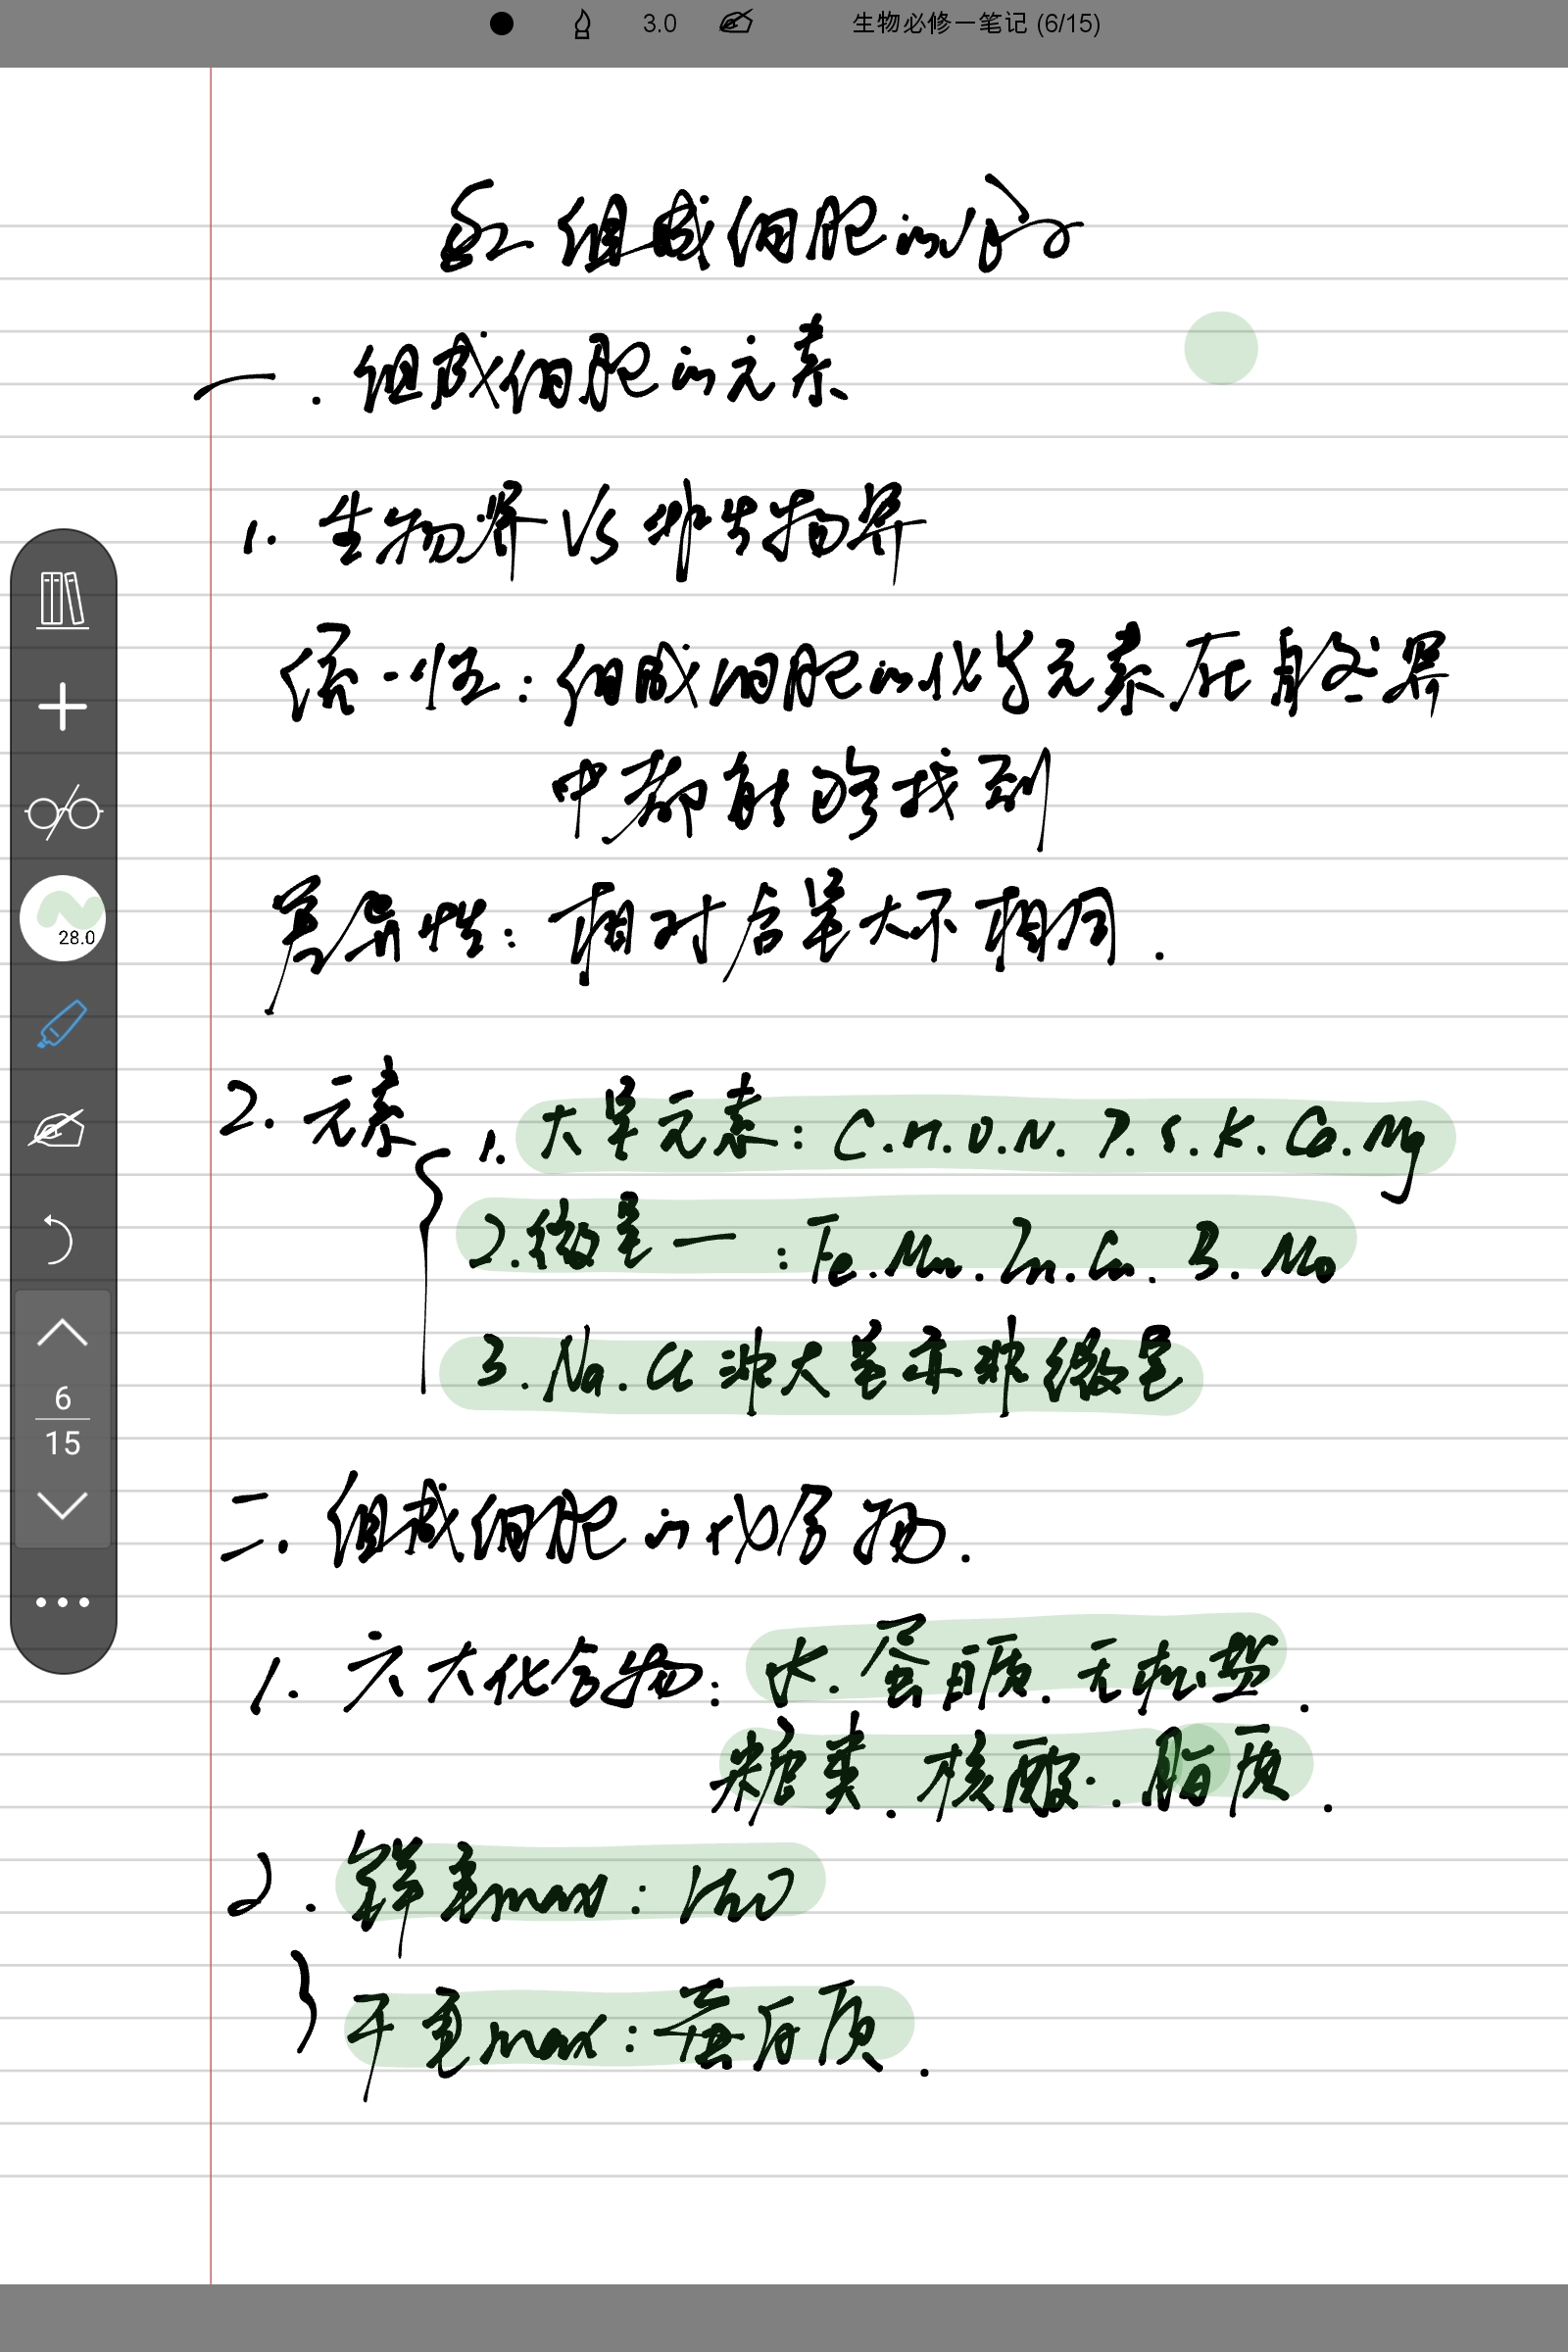 3.0 生物必修一笔记 (6/15)
组成细胞的分子
一.组成细胞的元素
1.生物界 Vs 非生物界
统一性:组成细胞的化学元素在自然界
中都能够找到
差异性:相对含量大不相同.
2.元素
1.大量元素:C.H.O.N.P.S.K.Ca.Mg
2.微量一:Fe.Mn.Zn.Cu.B.Mo
3.Na.Cl 非大量亦非微量
28.0
6
15
二.组成细胞的化合物.
1.六大化合物:水.蛋白质.无机盐.
糖类.核酸.脂质.
2.鲜重max:H2O
干重max:蛋白质.